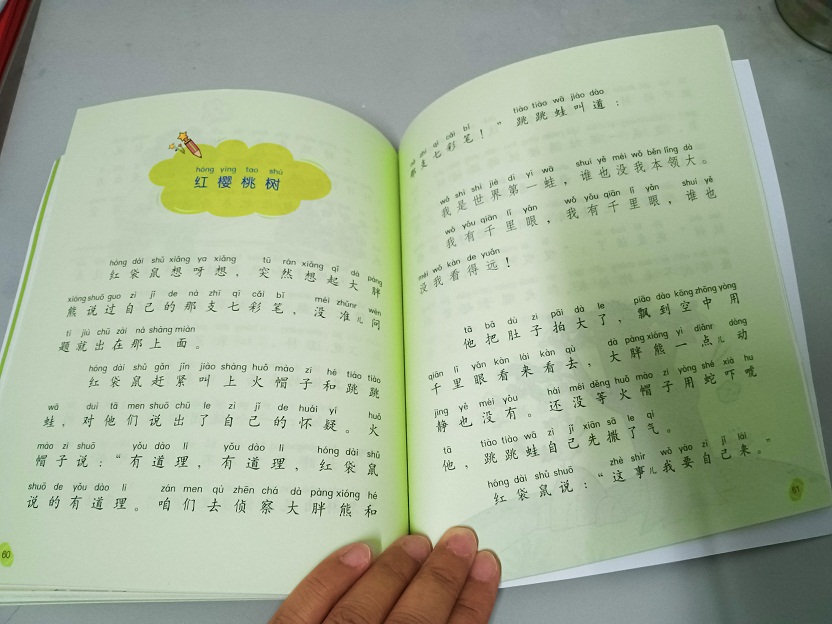 hóng yīng tao shù
红樱桃树
hóng dài shǔ xiǎng ya xiǎng tū rán xiǎng qǐ dà pàng
红袋鼠想呀想，突然想起大胖
xióng shuō guo zì jǐ de nà zhī qī cǎi bǐ méi zhǔnr wèn
熊说过自己的那支七彩笔，没准儿问
tí jiù chū zài nà shàng miàn
题就出在那上面。
hóng dài shǔ gǎn jǐn jiào shàng huǒ mào zi hé tiào tiào
红袋鼠赶紧叫上火帽子和跳跳
wā duì tā men shuō chū le zì jǐ de huái yí huǒ
蛙，对他们说出了自己的怀疑。火
mào zi shuō yǒu dào lǐ yǒu dào lǐ hóng dài shǔ
帽子说：“有道理，有道理，红袋鼠
shuō de yǒu dào lǐ zán men qù zhēn chá dà pàng xióng hé
说的有道理。咱们去侦察大胖熊和
60
nà zhī qī cǎi bǐ tiào tiào wā jiào dào
那支七彩笔！”跳跳蛙叫道：
wǒ shì shì jiè dì yī wā shuí yě méi wǒ běn lǐng dà
我是世界第一蛙，谁也没我本领大。
wǒ yǒu qiān lǐ yǎn wǒ yǒu qiān lǐ yǎn shuí yě
我有千里眼，我有千里眼，谁也
méi wǒ kàn de yuǎn
没我看得远！
tā bǎ dù zi pāi dà le piāo dào kōng zhōng yòng
他把肚子拍大了，飘到空中用
qiān lǐ yǎn kàn lái kàn qù dà pàng xióng yì diǎnr dòng
千里眼看来看去，大胖熊一点儿动
jìng yě méi yǒu hái méi děng huǒ mào zi yòng shé xià hu
静也没有。还没等火帽子用蛇吓唬
tā tiào tiào wā zì jǐ xiān sā le qì
他，跳跳蛙自己先撒了气。
hóng dài shǔ shuō zhè shìr wǒ yào zì jǐ lái
红袋鼠说：“这事儿我要自己来。”
61